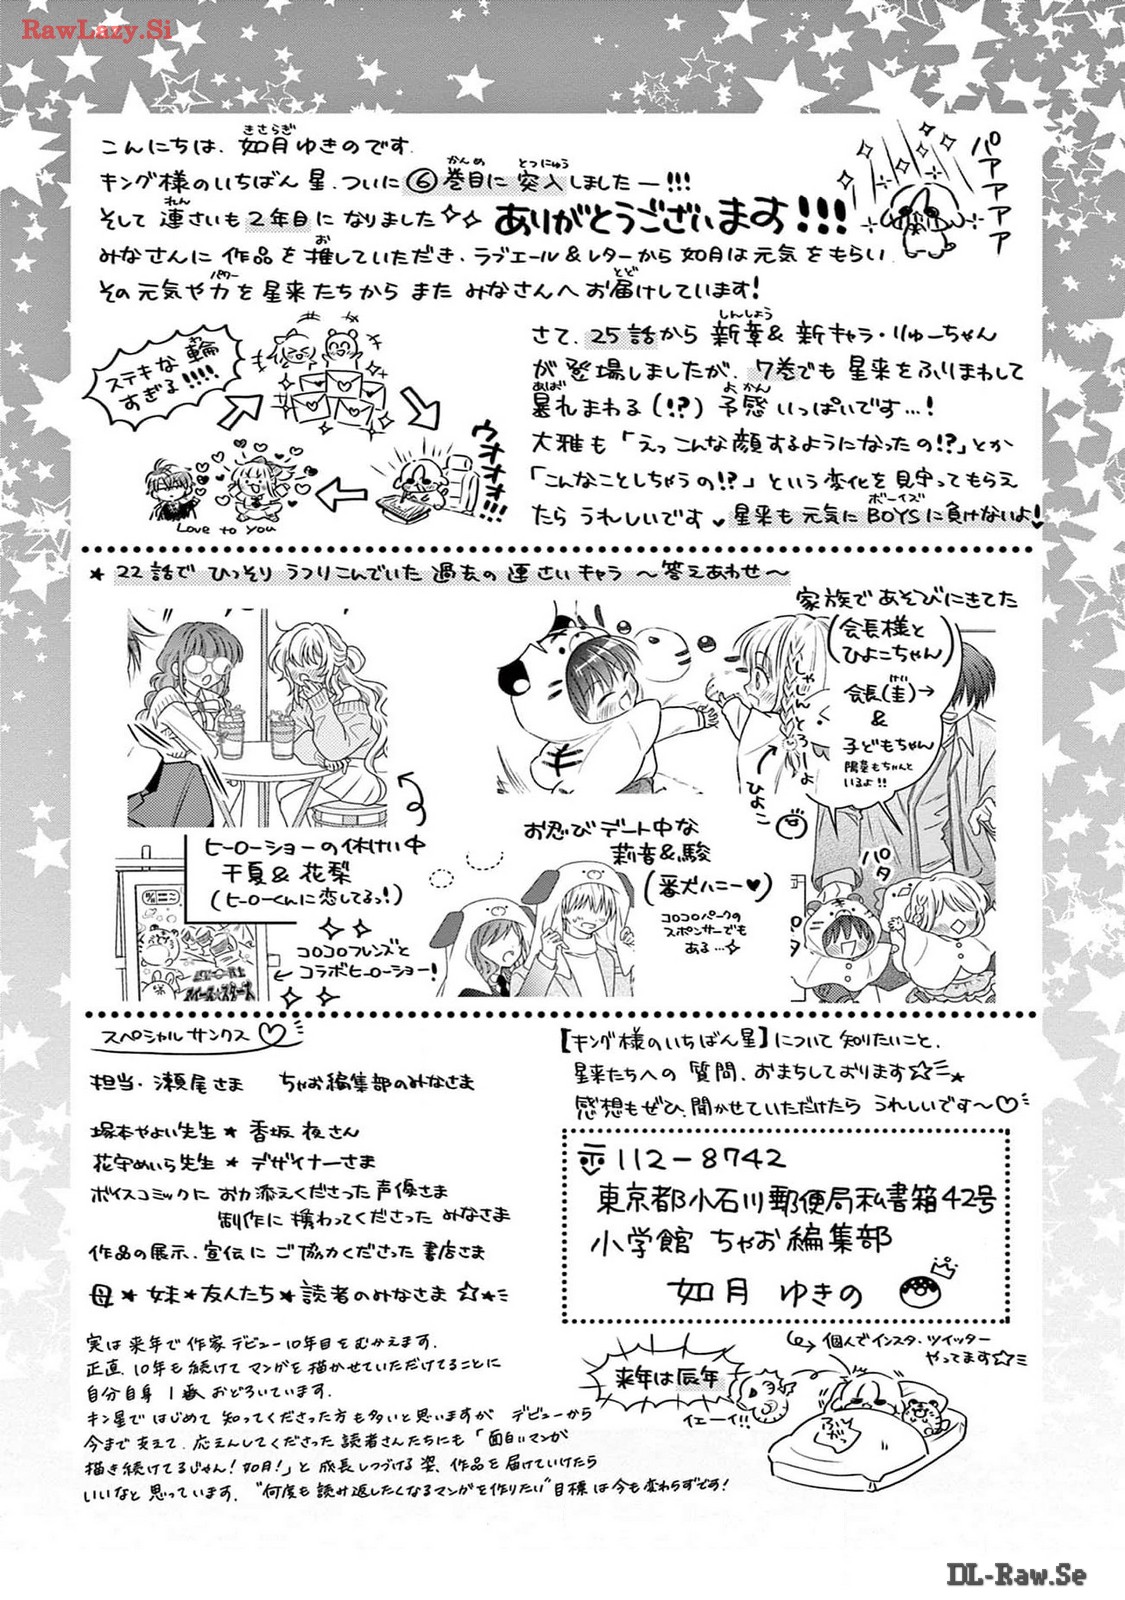 RawLazy.Si
こんにちは、如月ゆきのです。
きさらぎ
キング様のいちばん星、ついに⑥巻目に突入しましたー!!!
かんめ とつにゅう
そして連さいも2年目になりました ありがとうございます!!!
れん
みなさんに作品を推していただき、ラブエール&レターから如月は元気をもらい
お
その元気や力を星来たちからまたみなさんへお届けしています!
パワー とど
パアアアア
ステキな輪すぎる!!!!
わ
ウオオオォ!!!
Love to you
さて、25話から新章&新キャラ・りゅーちゃん
しんしょう
が登場しましたが、7巻でも星来をふりまわして
暴れまわる(!?)予感いっぱいです…!
あば よかん
大雅も「えっこんな顔するようになったの!?」とか
「こんなことしちゃうの!?」という変化を見守ってもらえ
たらうれしいです♥星来も元気にBOYSに負けないよ!
ボーイズ
★22話でひっそりうつりこんでいた過去の連さいキャラ〜答えあわせ〜
家族であそびにきてた
(会長様と
ひよこちゃん)
会長(圭)→
けい
&
子どもちゃん
陽葦もちゃんと
いるよ!!
しゃいんとろーよ
ひよこ
パタ
パタ
ヒーローショーの休けい中
千夏&花梨
(ヒーローくんに恋してるっ!)
コロコロフレンズと
コラボヒーローショー!
お忍びデート中な
莉音&駿
(番犬ハニー♥)
コロコロパークの
スポンサーでも
ある…
スペシャルサンクス♡
担当・瀬尾さま ちゃお編集部のみなさま
塚本やよい先生★香坂夜さん
花守めいら先生★デザイナーさま
ボイスコミックにお力添えくださった声優さま
制作に携わってくださったみなさま
作品の展示、宣伝にご協力くださった書店さま
母★妹★友人たち★読者のみなさま☆
実は来年で作家デビュー10年目をむかえます。
正直、10年も続けてマンガを描かせていただけてることに
自分自身1番おどろいています。
キン星ではじめて知ってくださった方も多いと思いますが デビューから
今まで支えて、応えんしてくださった読者さんたちにも「面白いマンガ
描き続けてるじゃん!如月!」と成長しつづける姿、作品を届けていけたら
いいなと思っています。"何度も読み返したくなるマンガを作りたい"目標は今も変わらずです!
【キング様のいちばん星】について知りたいこと、
星来たちへの質問、おまちしております☆
感想もぜひ、聞かせていただけたらうれしいです〜♡
〒112-8742
東京都小石川郵便局私書箱42号
小学館 ちゃお編集部
如月 ゆきの
個人でインスタ・ツイッター
やってます☆
来年は辰年
イェーイ!!
DL-Raw.Se